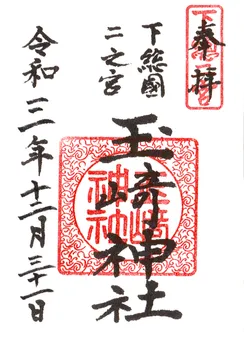 奉拝
下総國
二之宮
玉崎神社
玉崎
神社
令和三年十二月三十一日